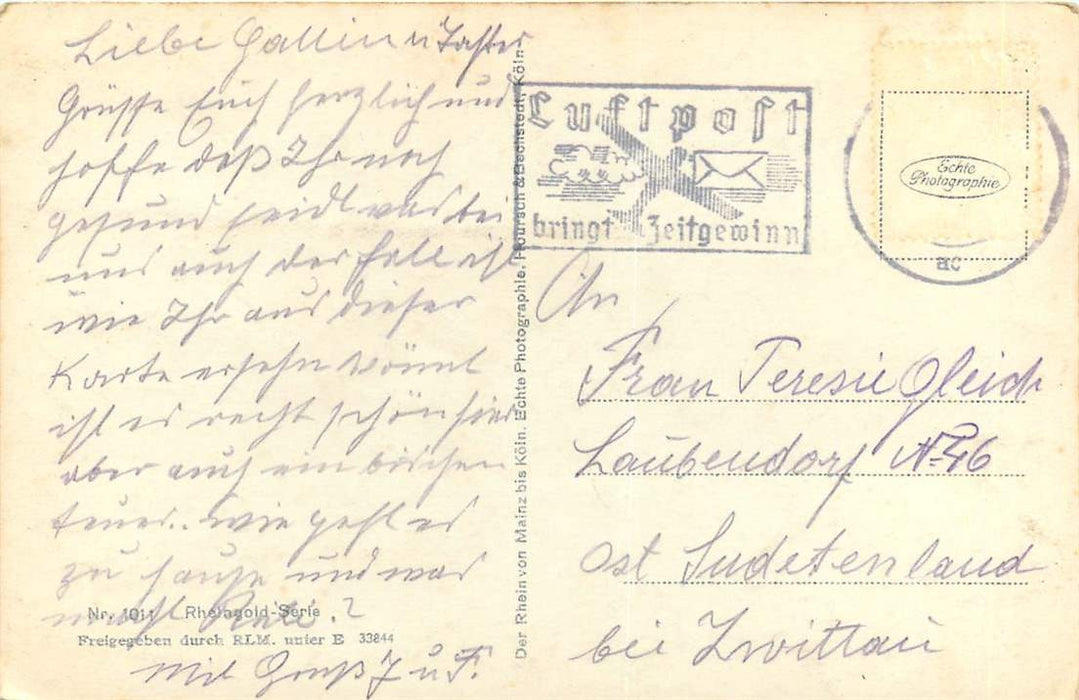 Liebe Gattin u Tochter
Grüsse Euch herzlich und
hoffe daß Ihr noch
gesund seid was bei
uns auch der Fall ist
wie Ihr aus dieser
Karte ersehn könnt
ist es recht schön hier
aber auch ein bischen
teuer.. wie geht es
zu hause und was
macht ?
Mit Gruß J u F.
Nr. 1011 Rheingold-Serie
Freigegeben durch RLM. unter E 33844
Der Rhein von Mainz bis Köln. Echte Photographie. Hoursch & Bechstedt, Köln
Luftpost
bringt Zeitgewinn
Echte
Photographie
ac
An
Frau Teresie Gleich
Laubendorf N-46
Ost Sudetenland
bei Zwittau